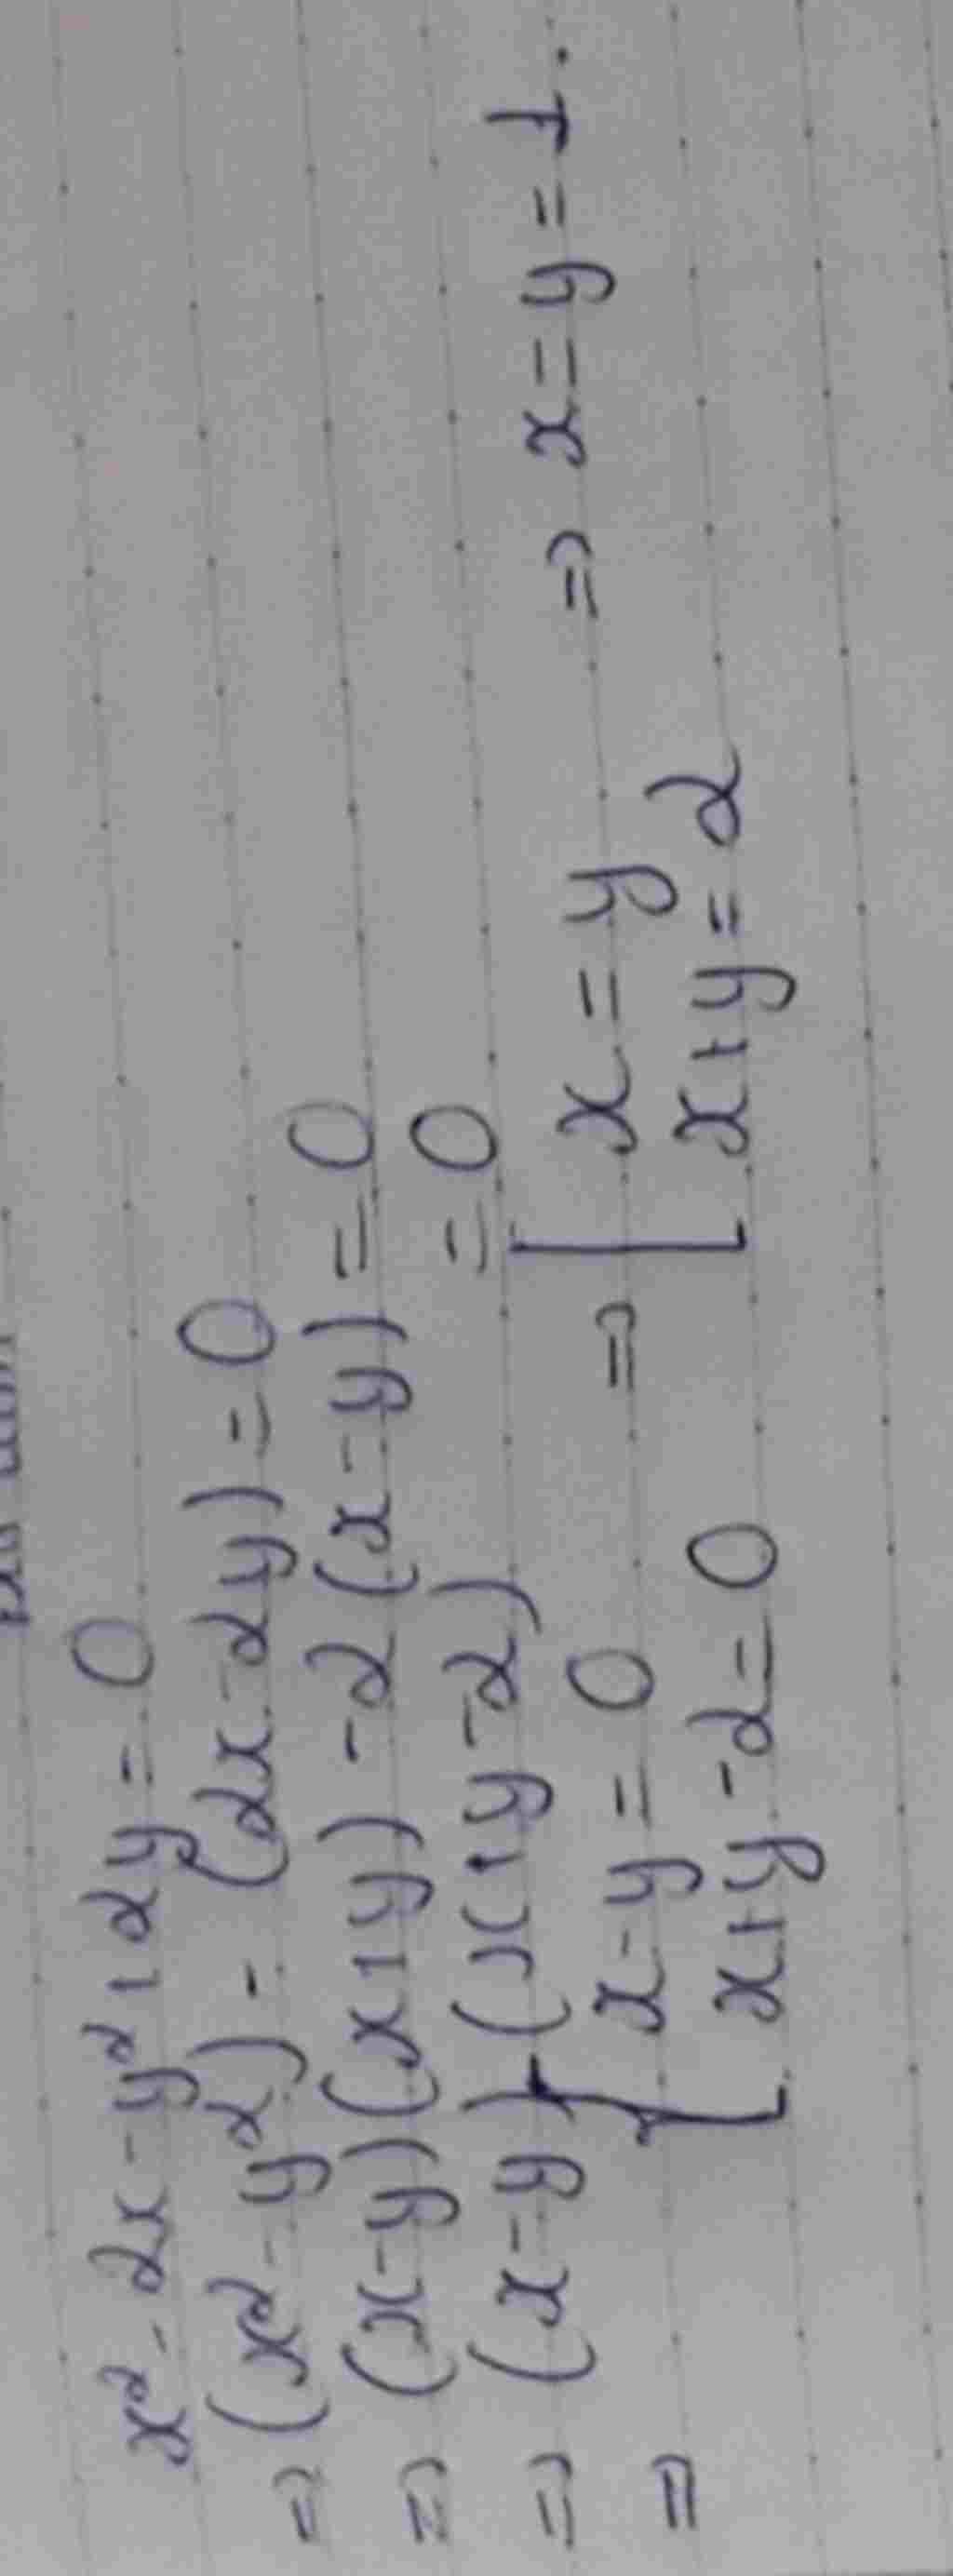 x² - 2x - y² + 2y = 0
=> (x² - y²) - (2x - 2y) = 0
=> (x - y)(x + y) - 2(x - y) = 0
=> (x - y)(x + y - 2) = 0
=> [ x - y = 0 => [ x = y => x = y = 1.
x + y - 2 = 0 x + y = 2